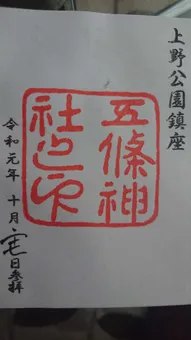 上野公園鎮座
五條神
社之印
令和元年 十月 日参拝